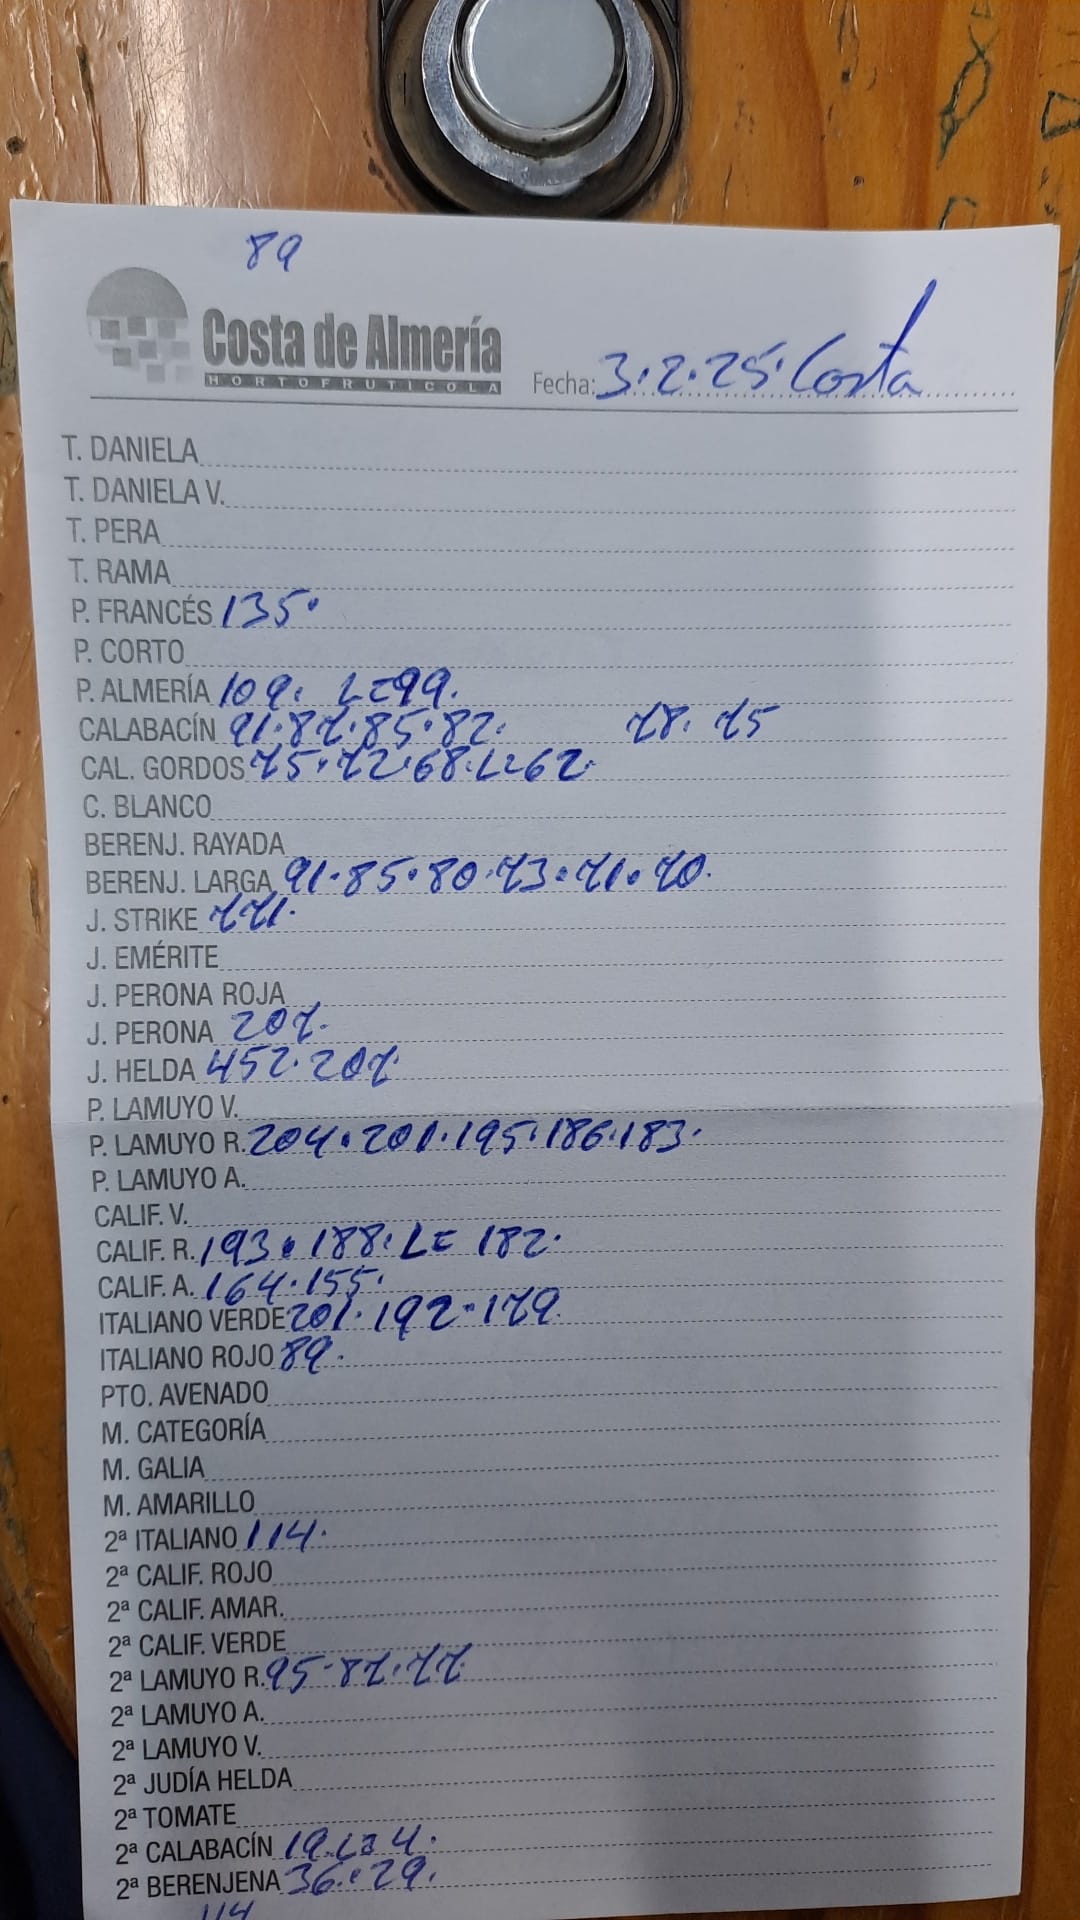 89
Costa de Almería
HORTOFRUTICOLA
Fecha: 3.2.25. Costa
T. DANIELA
T. DANIELA V.
T. PERA
T. RAMA
P. FRANCÉS 135.
P. CORTO
P. ALMERÍA 109. L=99.
CALABACÍN 91.87.85.82. 78. 75
CAL. GORDOS 75.72.68.L=62.
C. BLANCO
BERENJ. RAYADA
BERENJ. LARGA 91.85.80.73.71.70.
J. STRIKE 771.
J. EMÉRITE
J. PERONA ROJA
J. PERONA 207.
J. HELDA 452.207.
P. LAMUYO V.
P. LAMUYO R. 204.201.195.186.183.
P. LAMUYO A.
CALIF. V.
CALIF. R. 193.188.L= 182.
CALIF. A. 164.155.
ITALIANO VERDE 201.192.179.
ITALIANO ROJO 89.
PTO. AVENADO
M. CATEGORÍA
M. GALIA
M. AMARILLO
2ª ITALIANO 114.
2ª CALIF. ROJO
2ª CALIF. AMAR.
2ª CALIF. VERDE
2ª LAMUYO R. 95.87.77
2ª LAMUYO A.
2ª LAMUYO V.
2ª JUDÍA HELDA
2ª TOMATE
2ª CALABACÍN 19.L=4.
2ª BERENJENA 36.29.
114